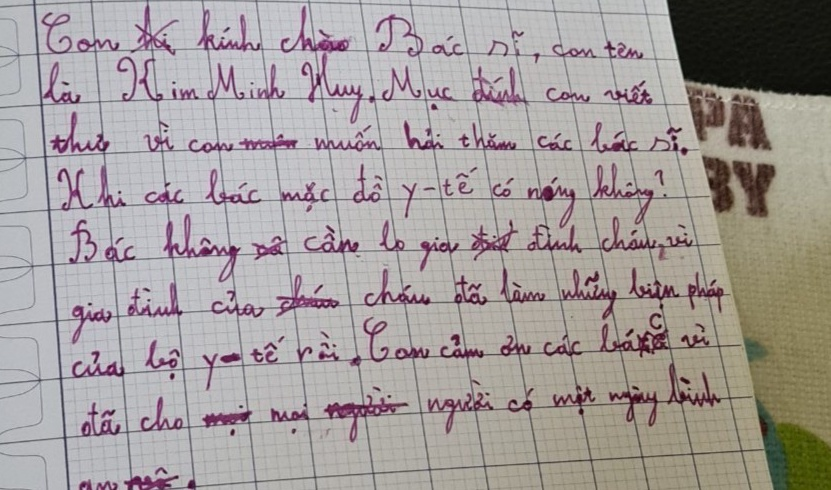 Con kính chào Bác sĩ, con tên
là Kim Minh Huy. Mục đính con viết
thư vì con muốn hỏi thăm các bác sĩ.
Khi các bác mặc đồ y-tế có nóng không?
Bác không cần lo gia đình cháu, vì
gia đình của cháu đã làm những biện pháp
của bộ y-tế rồi. Con cảm ơn các bác vì
đã cho mọi người có một ngày lành
an.
PA
BY